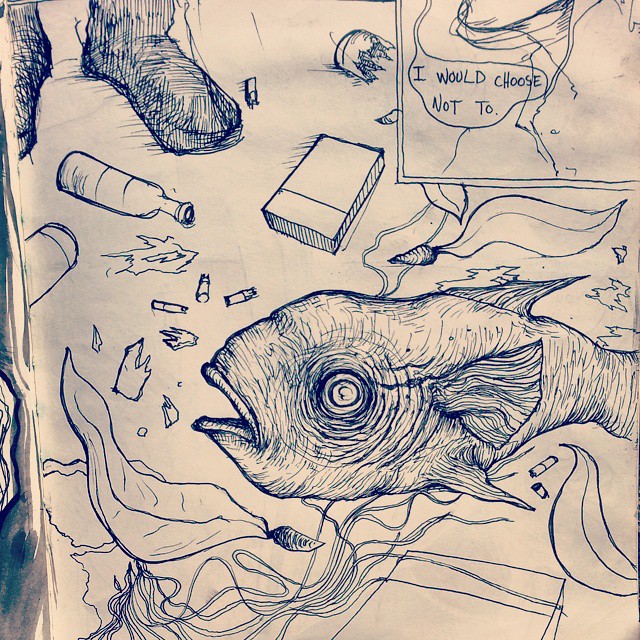 I WOULD CHOOSE
NOT TO.